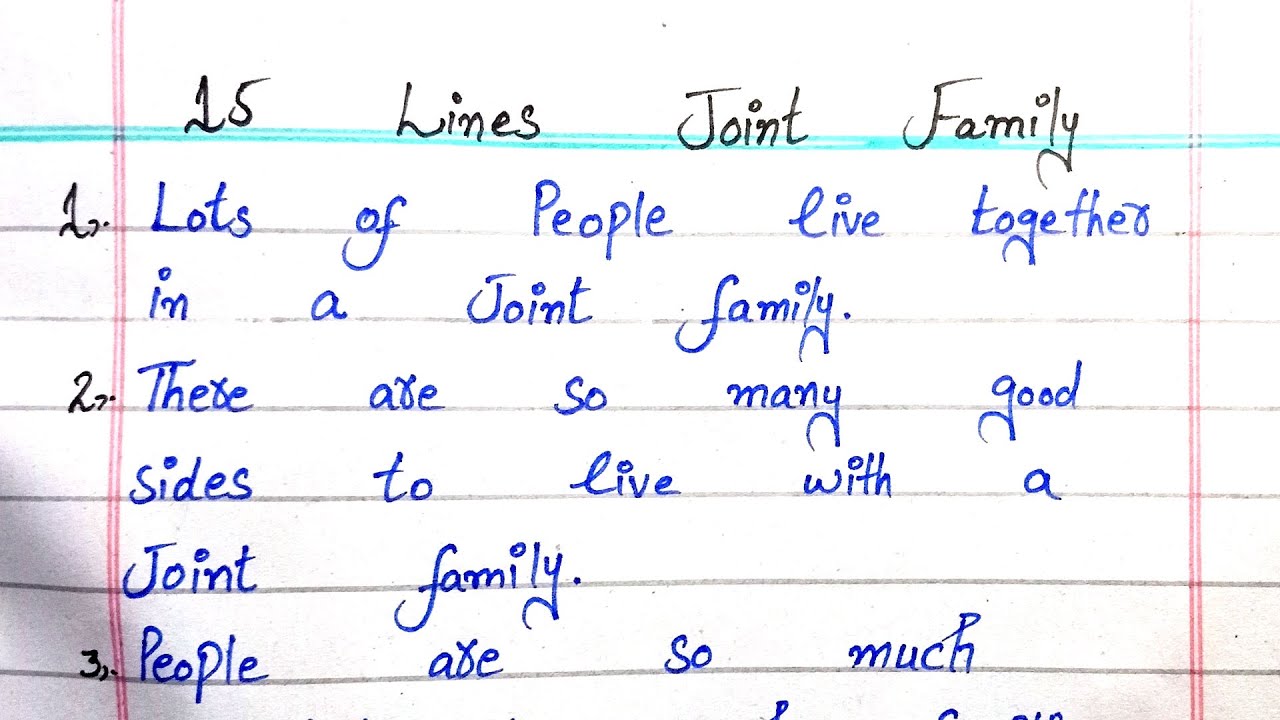 15 Lines Joint Family
1. Lots of People live together
in a Joint family.
2. There are so many good
sides to live with a
Joint family.
3. People are so much